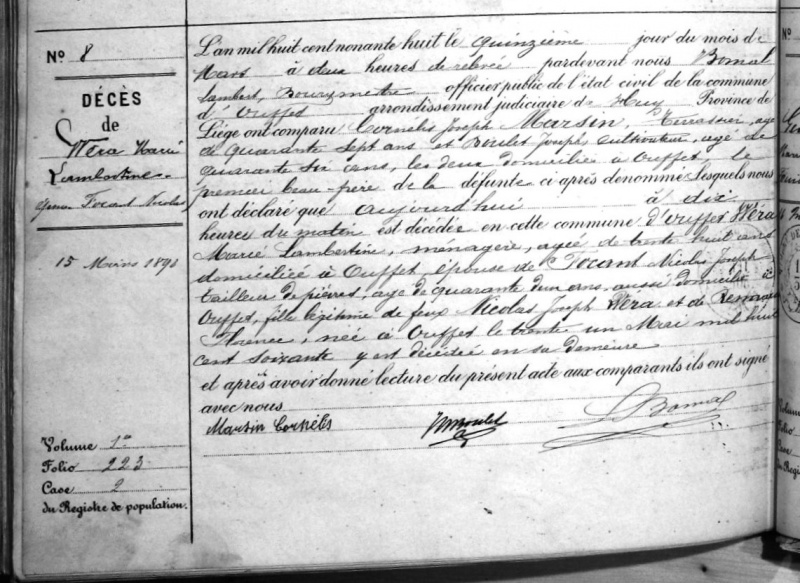 No 8
DÉCÈS
de
Wéra Marie
Lambertine
épouse Tocant Nicolas
15 Mars 1898
Volume 1er
Folio 223
Case 2
du Registre de population.
L'an mil huit cent nonante huit le quinzième jour du mois de
Mars à deux heures de relevée pardevant nous Bomal
Lambert, Bourgmestre officier public de l'état civil de la commune
d'Ouffet arrondissement judiciaire de Huy Province de
Liége ont comparu Cornélis Joseph Marsin, agé
de quarante sept ans et Boulet Joseph, cultivateur, agé de
quarante six ans, les deux domicilié à Ouffet, le
premier beau-frère de la défunte ci après denommé Lesquels nous
ont déclaré que aujourd'hui à dix
heures du matin est décédée en cette commune d'Ouffet Wéra
Marie Lambertine, ménagère, agée de trente huit ans
domiciliée à Ouffet, épouse de Tocant Nicolas Joseph
tailleur de pierres, agé de quarante d'un ans, aussi domicilié à
Ouffet, fille légitime de feux Nicolas Joseph Wéra et de
Florence, née à Ouffet le trente un Mai mil huit
cent soixante y est décédée en sa demeure
et après avoir donné lecture du présent acte aux comparants ils ont signé
avec nous
Marsin Cornélis
Boulet
L Bomal
No
Volume
Folio
Case
du Regis